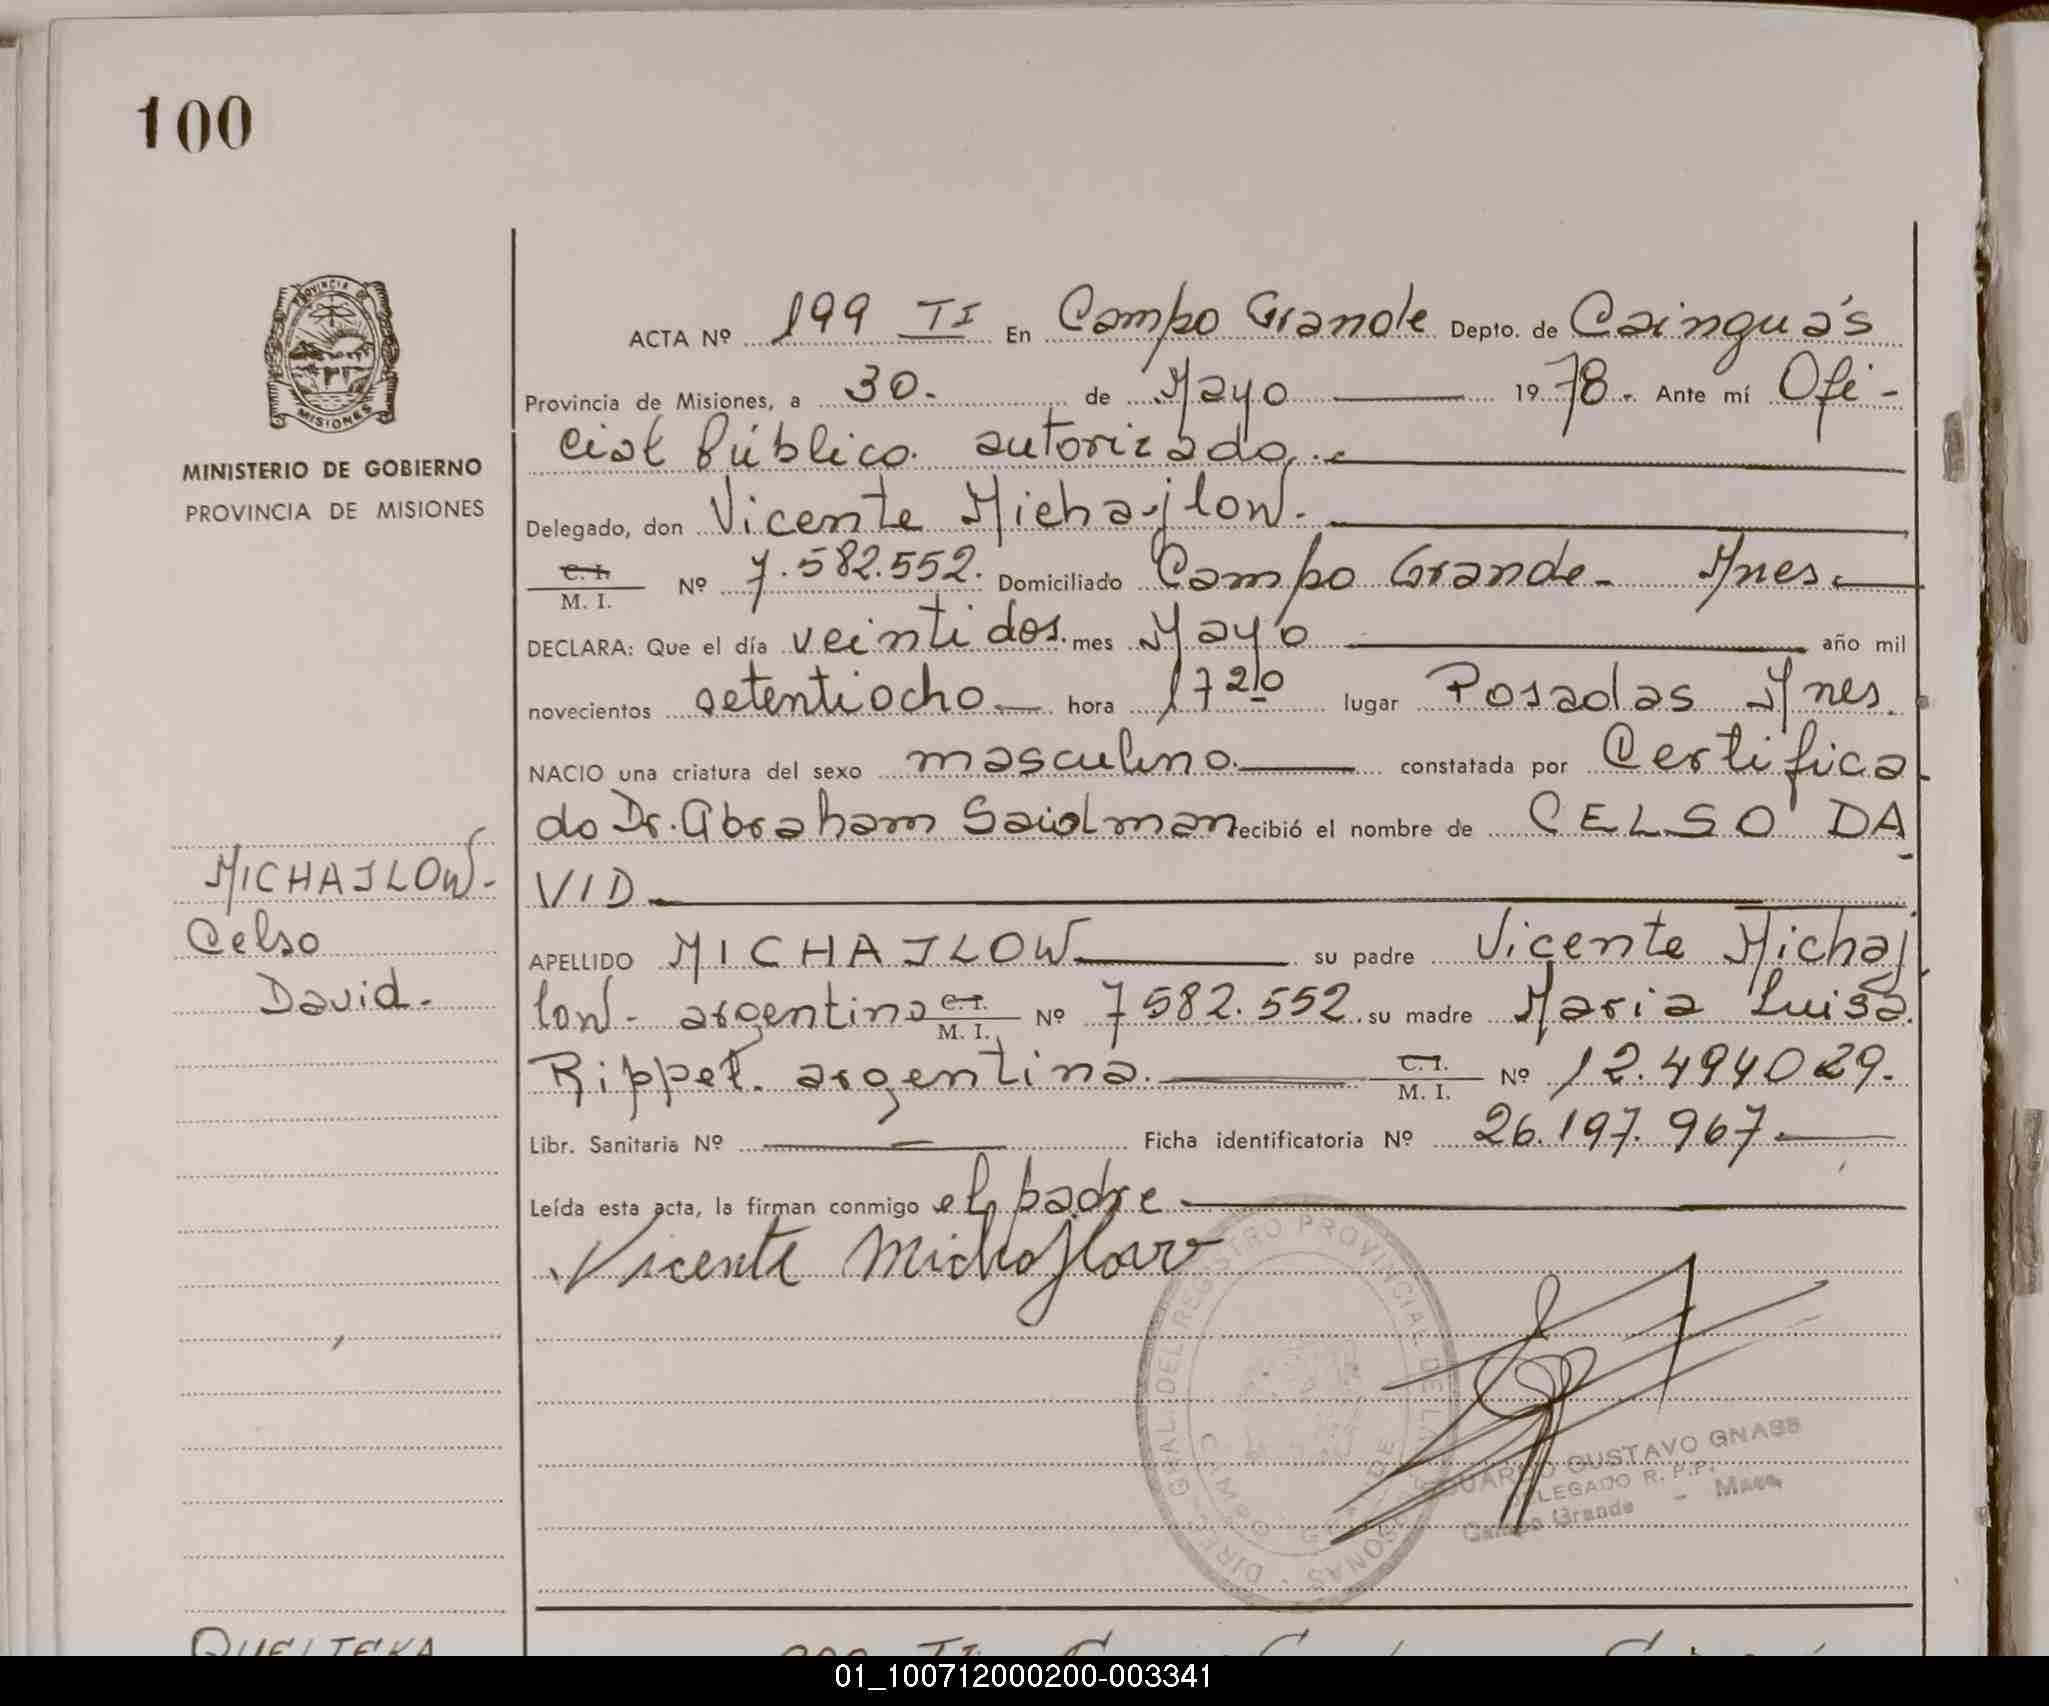 100
PROVINCIA DE
MISIONES
MINISTERIO DE GOBIERNO
PROVINCIA DE MISIONES
MICHAJLOW-
Celso
David.
ACTA Nº 199 TI En Campo Grande Depto. de Cainguás
Provincia de Misiones, a 30. de Mayo 1978. Ante mí Ofi-
cial Público autorizado
Delegado, don Vicente Michajlow.
C. I. / M. I. Nº 7.582.552. Domiciliado Campo Grande - Mnes.
DECLARA: Que el día veintidos. mes Mayo año mil
novecientos setentiocho hora 1720 lugar Posadas Mnes.
NACIO una criatura del sexo masculino. constatada por Certifica
do Dr. Abraham Saidman ecibió el nombre de CELSO DA
VID
APELLIDO MICHAJLOW su padre Vicente Michaj
low - argentino C. I. / M. I. Nº 7582.552. su madre Maria Luisa
Rippel. argentina. C. I. / M. I. Nº 12.494029.
Libr. Sanitaria Nº — Ficha identificatoria Nº 26.197.967.
Leída esta acta, la firman conmigo el padre
Vicente Michajlow
DIREC. GRAL. DEL REGISTRO PROVINCIAL DE LAS PERSONAS
CAMPO GRANDE
EDUARDO GUSTAVO GNASS
DELEGADO R. P.P.
Campo Grande - Mnes
QUELTEKA
01_100712000200-003341